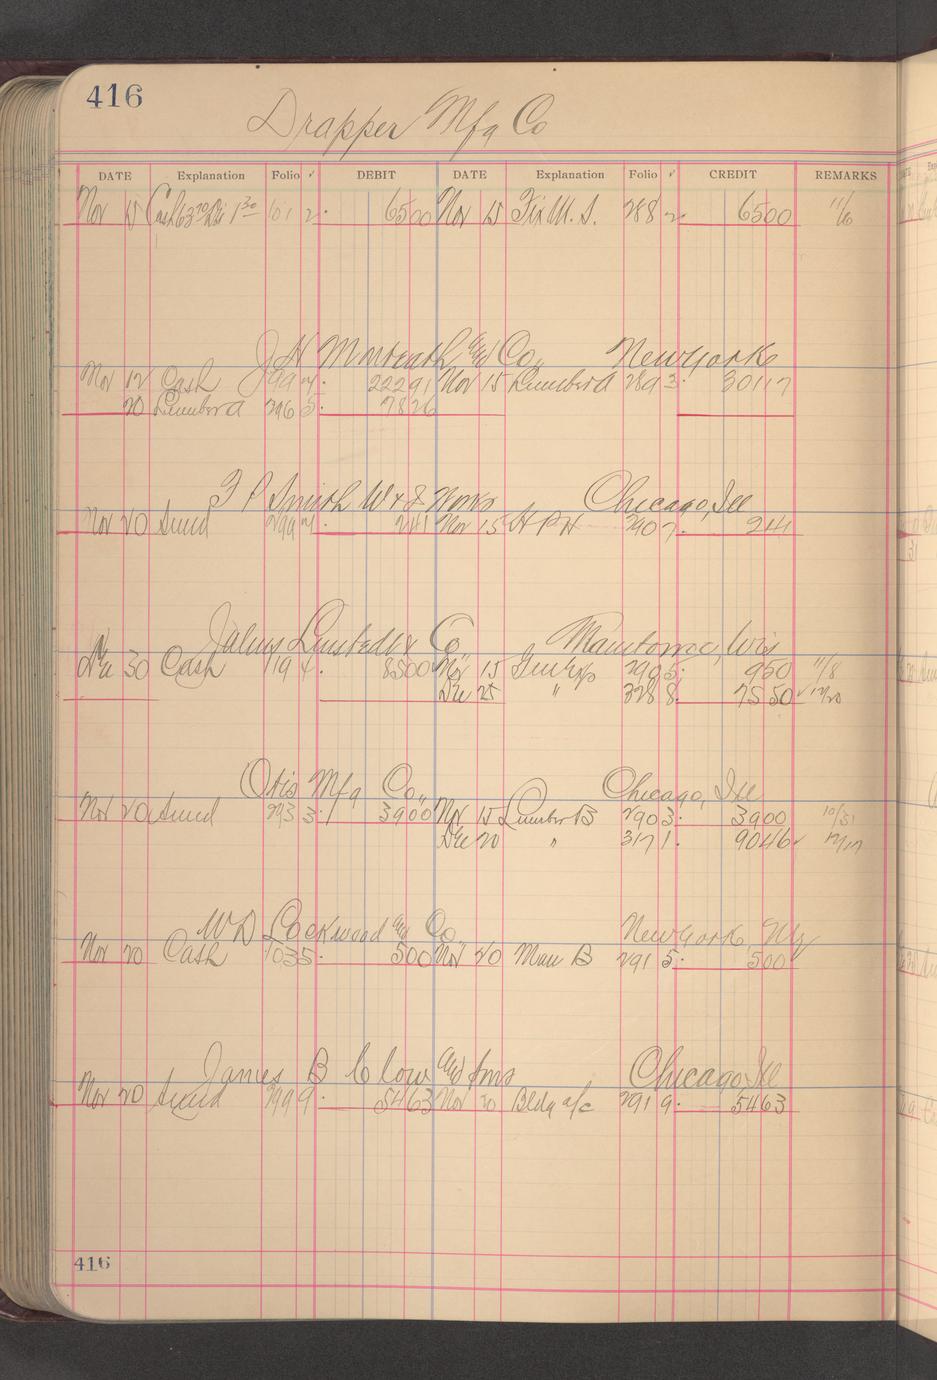 416
Drapper Mfg Co
DATE Explanation Folio ✓ DEBIT DATE Explanation Folio ✓ CREDIT REMARKS
Nov 15 Cash 63 70 Dis 1 30 101 2 6500 Nov 15 Fix M. S. 288 2 6500 11/6
J H Monteath and Co., New York
Nov 12 Cash 99 4 22291 Nov 15 Lumber A 289 3 30117
20 Lumber A 296 5 7826
T P Smith W & S Works Chicago, Ill
Nov 20 Sund 299 4 241 Nov 15 H P H 290 7 241
Lunstedt & Co Manitowoc, Wis
Dec 30 Cash 119 4 8500 Nov 15 Gen Exp 290 5 950 11/8
Dec 25 " 328 8 7550 ✓ 12/20
Otis Mfg Co., Chicago, Ill
Nov 20 Sund 293 3 3900 Nov 15 Lumber B 290 3 3900 10/31
Dec 20 " 317 1 9046 ✓ 12/17
W D Lockwood and Co. New York, Ny
Nov 20 Cash 103 5 500 Nov 20 Man B 291 5 500
James B Clow and Sons Chicago Ill
Nov 20 Sund 299 9 5463 Nov 20 Bldg a/c 291 9 5463
416